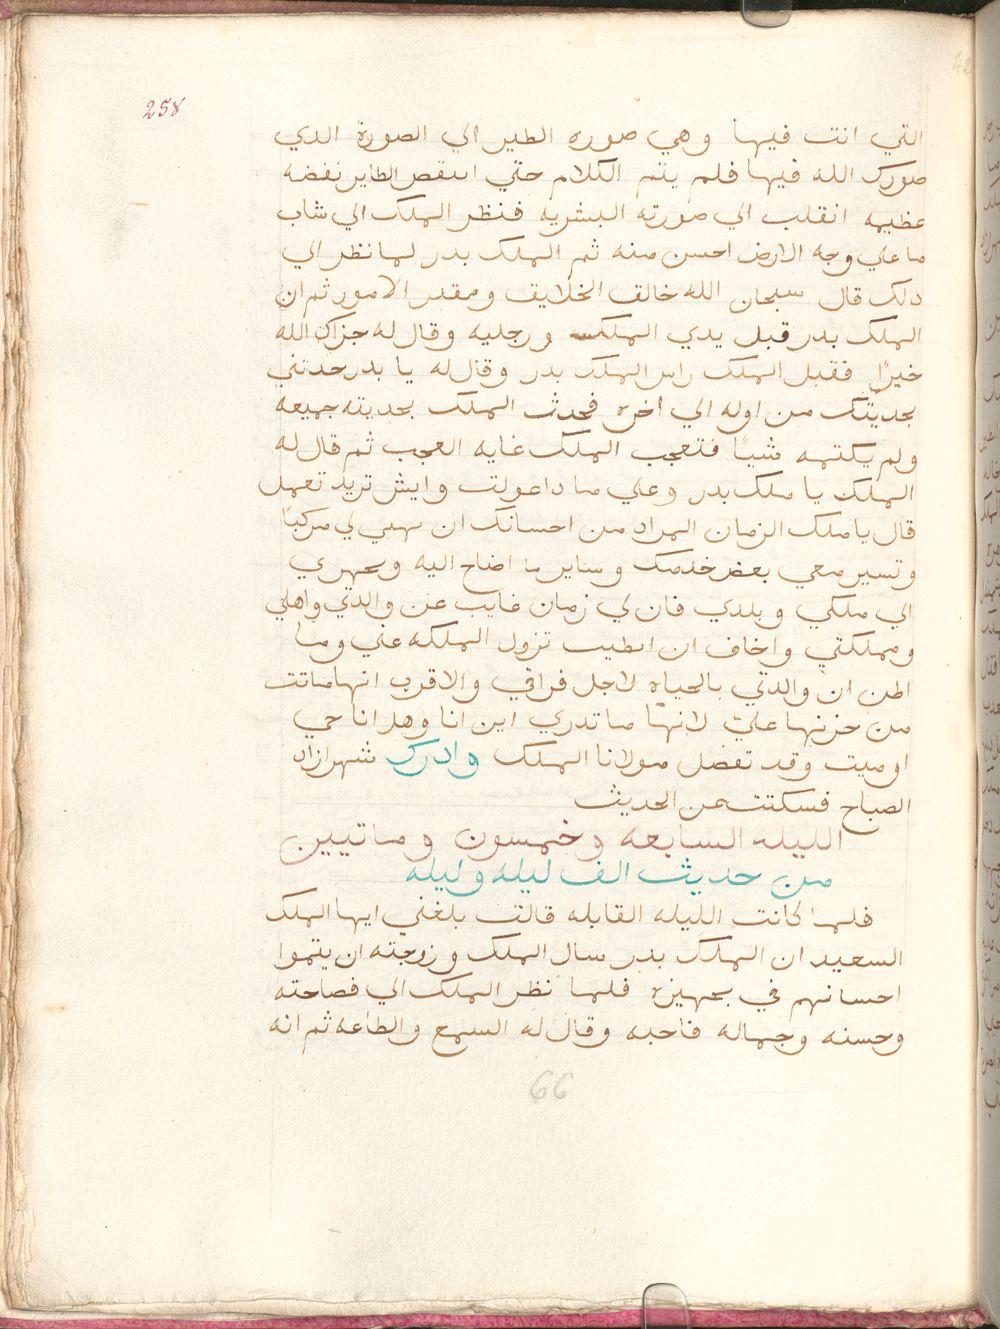 258
التي انت فيها وهي صوره الطير الي الصورة الذي
صورك الله فيها فلم يتم الكلام حتي انتفض الطاير نفضه
عظيمه انقلب الي صورته البشريه فنظر الملك الي شاب
ما علي وجه الارض احسن منه ثم الملك بدر لما نظر الي
دلك قال سبحان الله خالق الخلايق ومقدر الامور ثم ان
الملك بدر قبل يدي الملك ورجليه وقال له جزاك الله
خيرًا فقبل الملك راس الملك بدر وقال له يا بدر حدثني
بحديثك من اوله الي اخره فحدث الملك بحديثه جميعه
ولم يكتمه شيا فتعجب الملك غايه العجب ثم قال له
الملك يا ملك بدر وعلي ما داعولت وايش تريد تعمل
قال يا ملك الزمان المراد من احسانك ان تهيي لي مركبًا
وتسير معي بعض خدمك وساير ما احتاج اليه وتجهزي
الي ملكي وبلدي فان لي زمان غايب عن والدتي واهلي
ومملكتي واخاف ان ابطيت تزول المملكه عني وما
اظن ان والدتي بالحياه لاجل فراقي والاقرب انها ماتت
من حزنها عليّ لانها ما تدري اين انا وهل انا حي
او ميت وقد تفضل مولانا الملك وادرك شهرازاد
الصباح فسكتت عن الحديث
الليله السابعه وخمسون وماتيين
من حديث الف ليله وليله
فلما كانت الليله القابله قالت بلغني ايها الملك
السعيد ان الملك بدر سال الملك وزوجته ان يتموا
احسانهم في تجهيزه فلما نظر الملك الي فصاحته
وحسنه وجماله فاحبه وقال له السمع والطاعه ثم انه
66